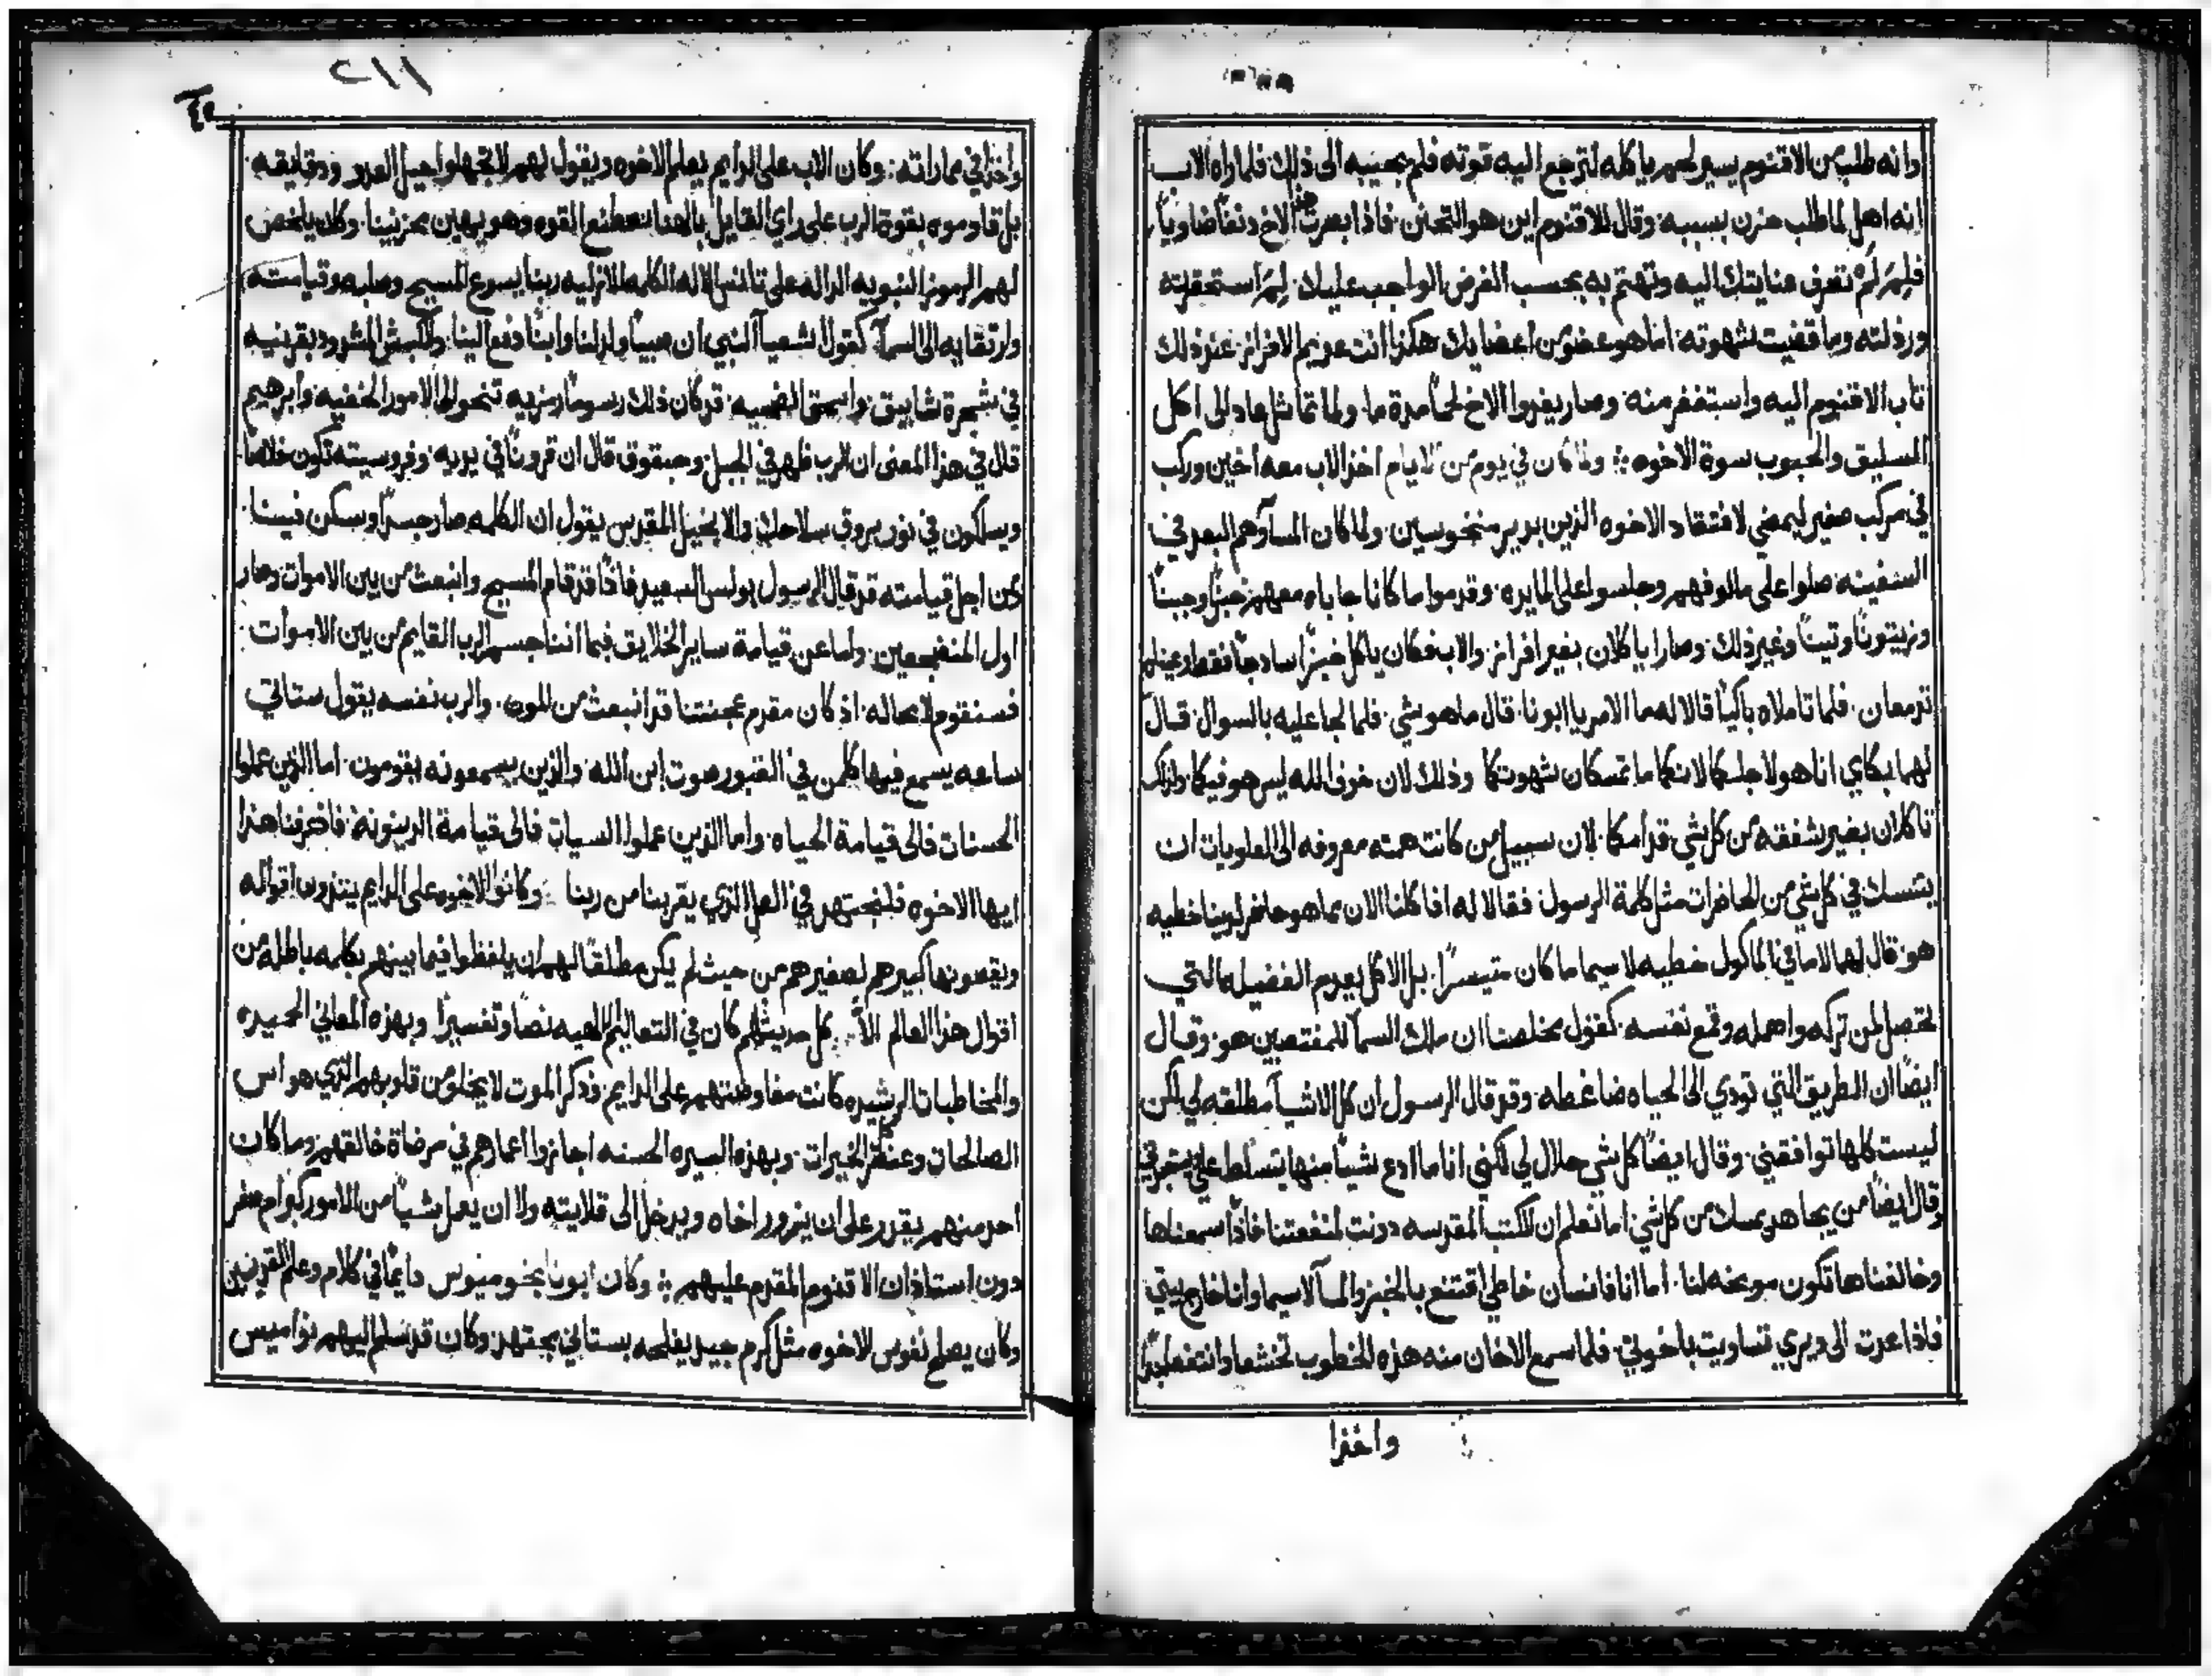 وانه طلب من الاقنوم يسير لحم ياكله لترجع اليه قوته فلم يجيبه الى ذلك فلما راه الاب
انه اهمل لما طلب حزن بسببه وقال للاقنوم اين هو التحنن فاذا ابصرت هذا الاخ دنفا ضاويا
فلم لم تصرف عنايتك اليه وتهتم به بحسب الفرض الواجب عليك لم استحقرته
ورذلته وما قضيت شهوته اما هو عضو من اعضايك هكذا انت عديم الافراز عند ذلك
تاب الاقنوم اليه واستغفر منه وصار يغدوا الاخ لحما مدة ما ولما تماثل عاد الى اكل
السليق والحبوب سوة الاخوه ولما كان في يوم من الايام اخذ الاب معه اخين وركب
في مركب صغير ليمضي لافتقاد الاخوه الذين بدير منخوسين ولما كان المسا وهم البعد في
السفينه صلوا على مالوفهم وجلسوا على المايده وقدموا ما كانا جاباه معهم خبزا وجبنا
وزيتونا وتينا وغير ذلك وصارا ياكلان بغير افراز والاب فكان ياكل خبزا سادجا فقط وعيناه
تدمعان فلما تاملاه باكيا قالا له ما الامر يا ابونا قال ما هو شي فلما لجا عليه بالسوال قال
لهما بكاي انا هو لاجلكما لانكما ما تمسكان شهوتكما وذلك لان خوف الله ليس هو فيكما ولذلك
تاكلان بغير شفقه من كل شي قدامكما لان سبيل من كانت همته معروفه الى العلويات ان
يتمسك في كل شي من الحاضرات مثل كلمة الرسول فقالا له افاكلنا الان مما هو حاضر لدينا خطيه
هو قال لهما لاما في الماكول خطيه لا سيما ما كان متيسرا بل الاكل يعدم الفضيله التي
تحصل لمن تركه واهمله وقمع نفسه كقول مخلصنا ان ملك السما للمغتصبين هو وقال
ايضا ان الطريق التي تودي الى الحياه ضاغطه وقد قال الرسول ان كل الاشيا مطلقه لي لكن
ليست كلها توافقني وقال ايضا كل شي حلال لي لكني انا ما ادع شيا منها يتسلط علي
وقال ايضا من يجاهد يمسك من كل شي اما نعلم ان الكتب المقدسه دونت لمنفعتنا فاذا سمعناها
وخالفناها تكون موبخه لنا اما انا فانسان خاطي اقتنع بالخبز والما لا سيما وانا خارج بيتي
فاذا عدت الى ديري تساويت باخوتي فلما سمع الاخان منه هذه الخطوب تخشعا وانتفعا
واخذا
٢١١
واخذا في مماراته وكان الاب على الدايم يعلم الاخوه ويقول لهم لا تجهلوا حيل العدو ودقايقه
بل قاوموه بقوة الرب على راي القايل بالهنا نصطنع القوه وهو يهين محزنينا وكان يلخص
لهم الرموز النبويه الداله على تانس الاله الكلمه الازليه ربنا يسوع المسيح وصلبه وقيامته
وارتقايه الى السما كقول اشعيا النبي ان صبيا ولد لنا وابنا دفع الينا والكبش المشدود بقرنيه
في شجرة شابيق واسحق الضحيه قد كان ذلك رسوما رمزيه تنحو الى الامور الخفيه وابرهيم
قال في هذا المعنى ان الرب ظهر في الجبل وحبقوق قال ان قرونا في يديه وفروسيته تكون خلاصا
ويسلكون في نور بروق سلاحك والانجيل المقدس يقول ان الكلمه صار جسدا وسكن فينا
ومن اجل قيامته قد قال الرسول بولس السعيد فاذا قد قام المسيح وانبعث من بين الاموات وصار
اول المنضجعين واما عن قيامة ساير الخلايق فبما اننا جسد الرب القايم من بين الاموات
فسنقوم لا محاله اذ كان مقدم عجنتنا قد انبعث من الموت والرب نفسه يقول ستاتي
ساعه يسمع فيها كلمن في القبور صوت ابن الله والذين يسمعونه يقومون اما الذين عملوا
الحسنات فالى قيامة الحياه واما الذين عملوا السيات فالى قيامة الدينونة فاذ عرفنا هذا
ايها الاخوه فلنجتهد في العمل الذي يقربنا من ربنا وكانوا الاخوه على الدايم يتدون اقواله
ويقصونها كبيرهم لصغيرهم من حيث لم يكن مطلقا لهم ان يلفظوا فيما بينهم بكلمه باطله من
اقوال هذا العالم الا كل حديثهم كان في التعاليم الالهيه نصا وتفسيرا وبهذه المعاني الحميده
والمخاطبات الرشيده كانت مفاوضتهم على الدايم وذكر الموت لا يخلو من قلوبهم الذي هو اس
الصالحات وعنصر الخيرات وبهذه السيره الحسنه اجازوا اعمارهم في مرضاة خالقهم وما كان
احد منهم يقدر على ان يزور اخاه ويدخل الى قلايته ولا ان يعمل شيا من الامور كبر ام صغر
دون استاذان الاقنوم المقدم عليهم وكان ابونا بخوميوس دايما في كلام وعلم القديسين
وكان يصلح نفوس الاخوه مثل كرم جيد يفلحه بستاني مجتهد وكان قد سلم اليهم نواميس